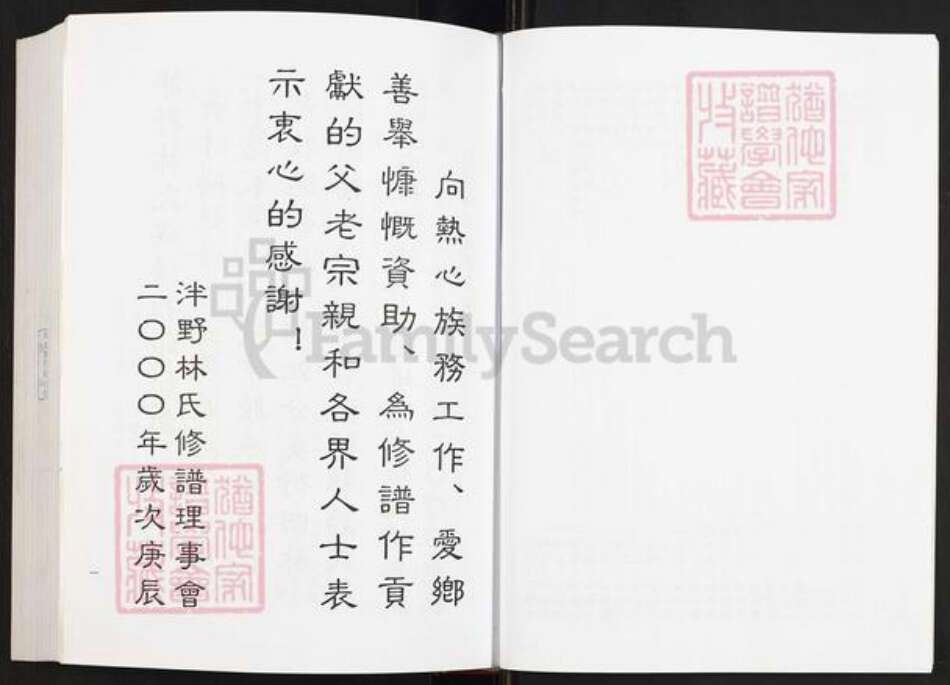 猶他家
譜學會
收藏
向熱心族務工作、愛鄉
善舉慷慨資助、為修譜作貢
獻的父老宗親和各界人士表
示衷心的感謝！
泮野林氏修譜理事會
二〇〇〇年歲次庚辰
猶他家
譜學會
收藏
FamilySearch